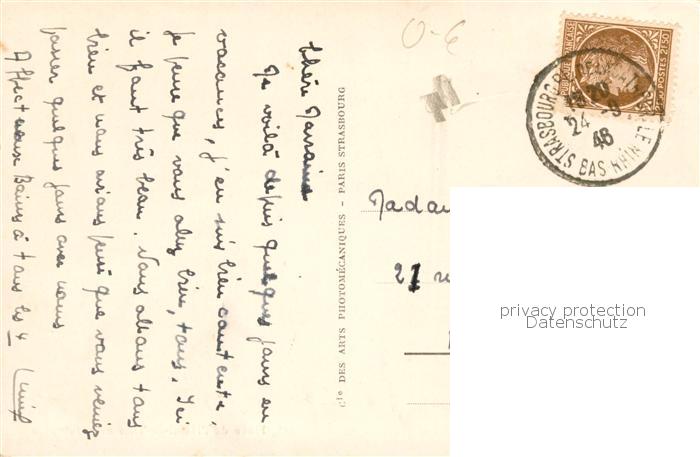 Chère Marraine
Me voilà depuis quelques jours en
vacances, j'en suis bien contente,
je pense que vous allez bien, tous. Ici
il fait très beau. Nous allons tous
bien et nous avions pensé que vous veniez
passer quelques jours avec nous
Affectueux Baisers à tous les 4
Cie DES ARTS PHOTOMÉCANIQUES - PARIS STRASBOURG
O-6
RÉPUBLIQUE FRANÇAISE
POSTES 2F50
STRASBOURG
24 -8
46
BAS RHIN
Madam
21 r
privacy protection
Datenschutz